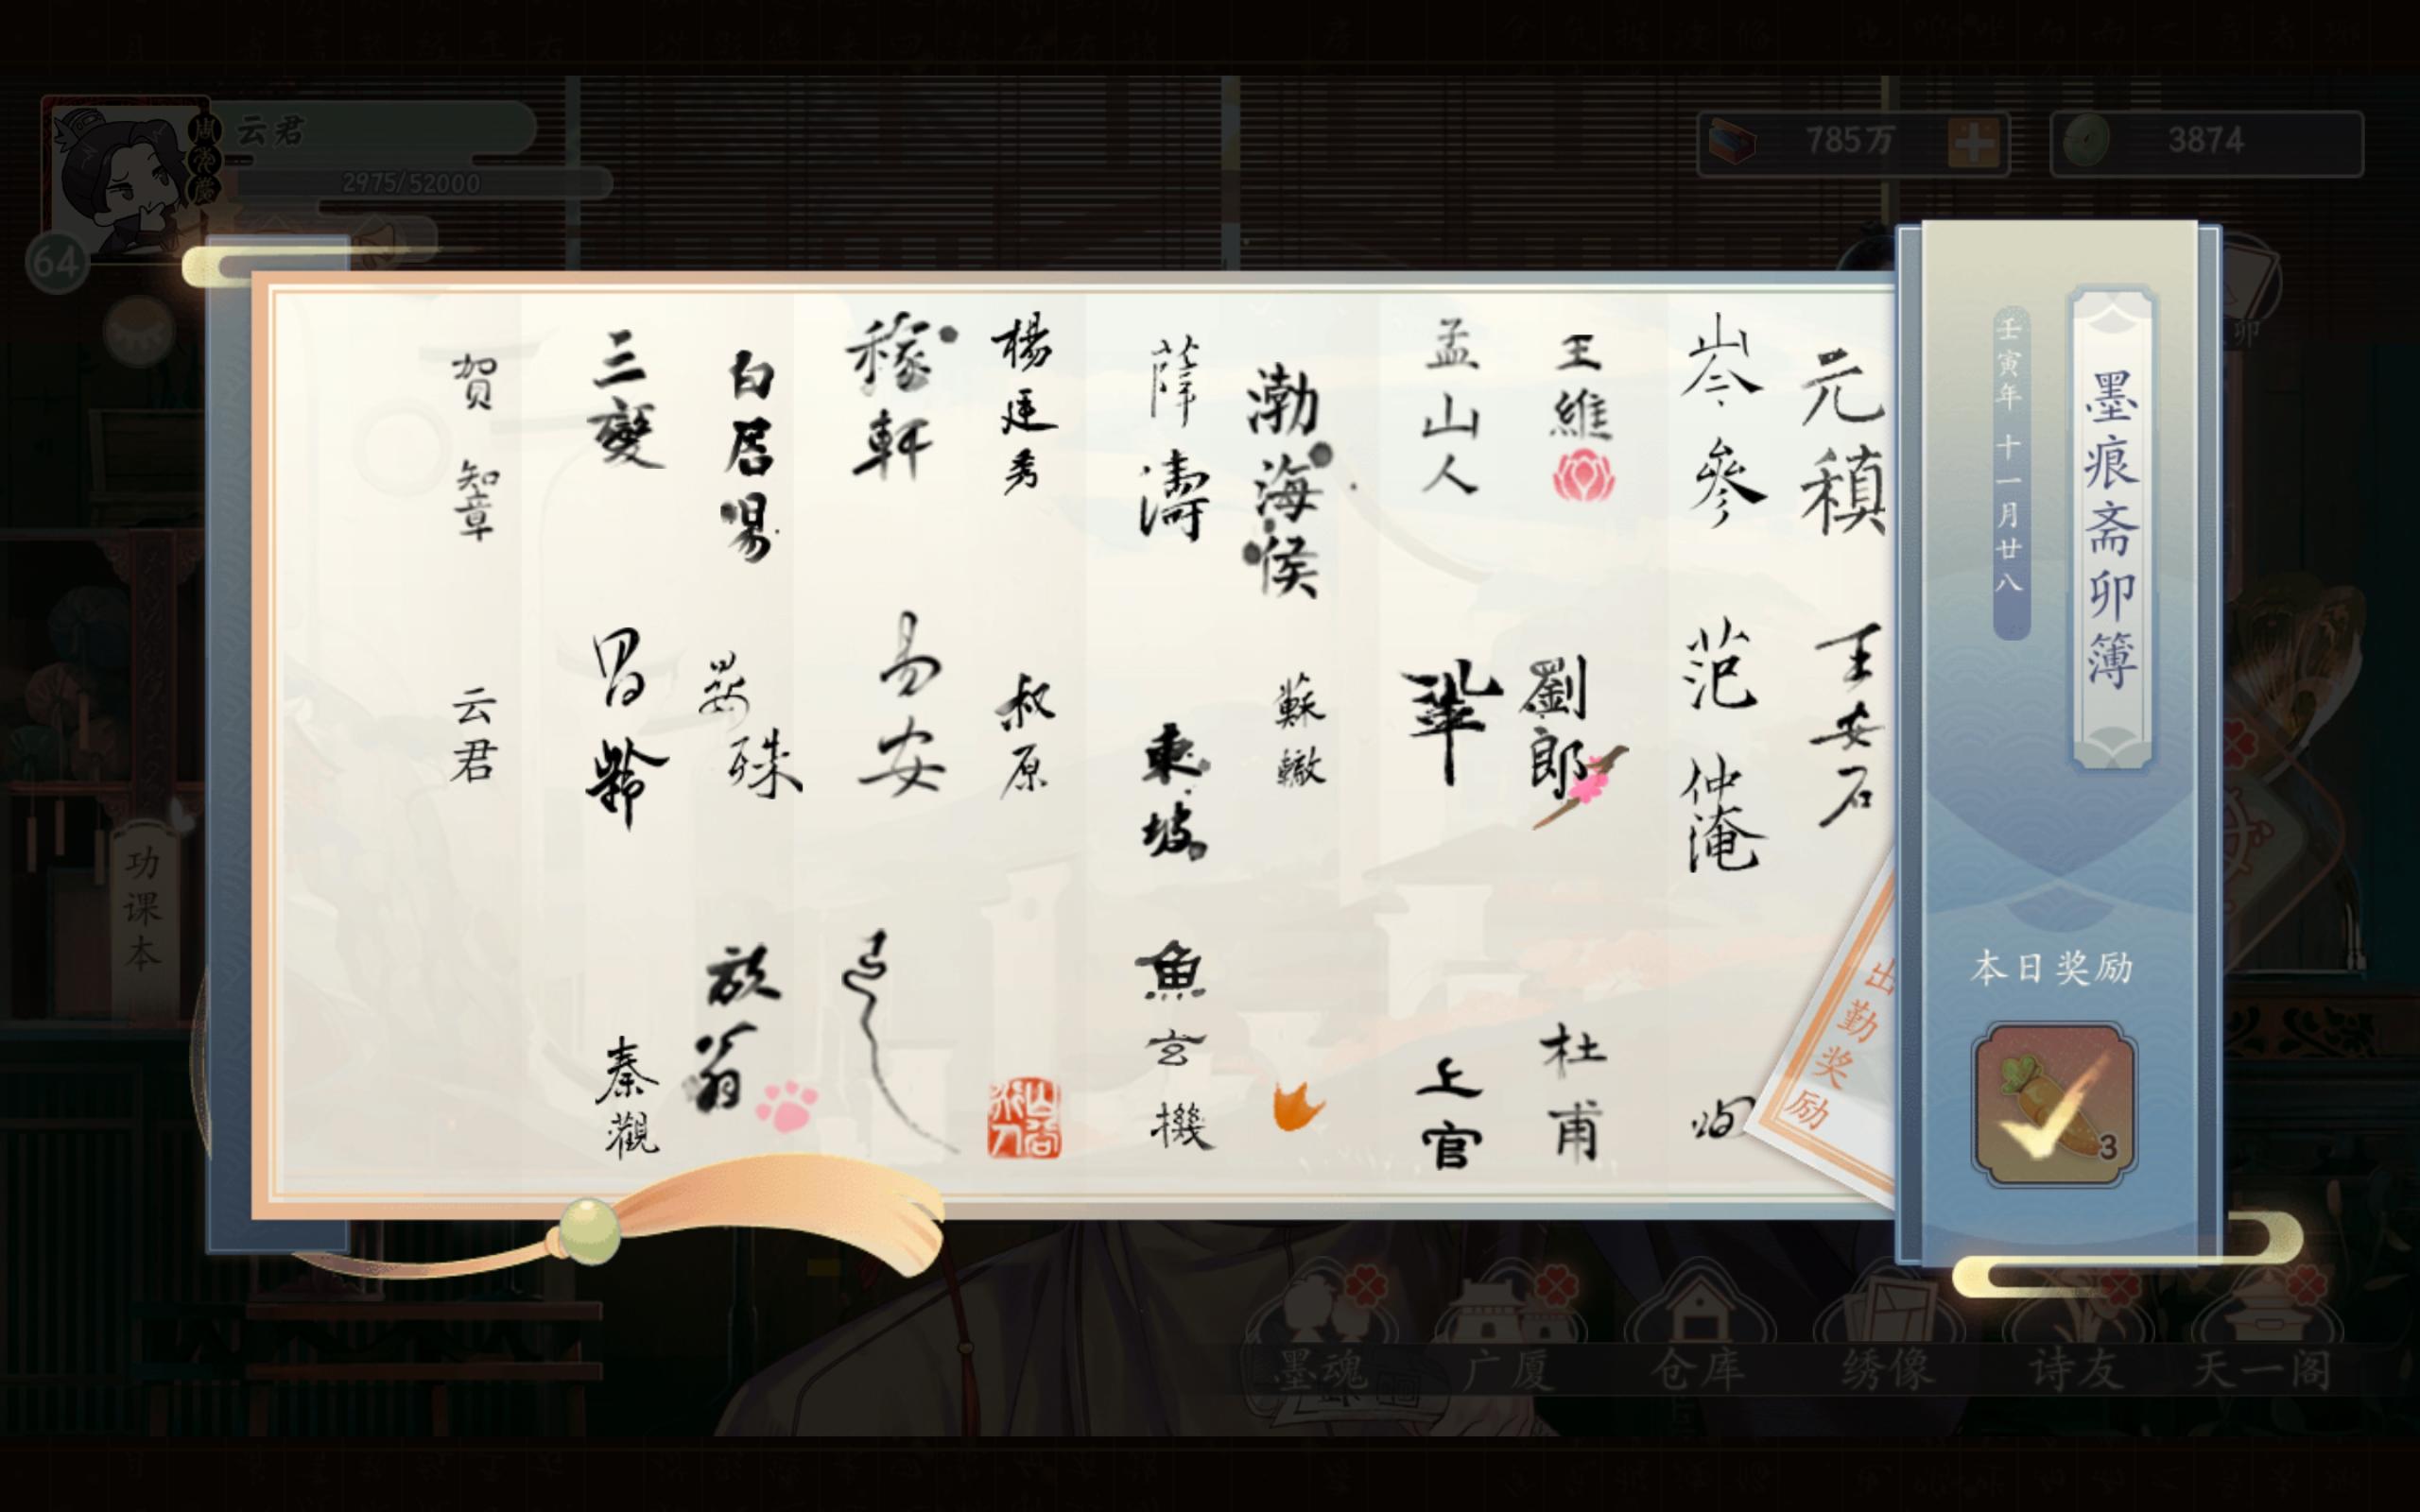 云君
周邦彦
2975/52000
64
785万
3874
墨痕斋卯簿
壬寅年 十一月廿八
本日奖励
3
出勤奖励
元稹
王安石
岑參
范仲淹
王維
劉郎
杜甫
孟山人
鞏
上官
渤海侯
蘇轍
薛濤
東坡
魚玄機
楊廷秀
叔原
稼軒
易安
白居易
晏殊
放翁
三變
昌齡
秦觀
贺知章
云君
功课本
墨魂
广厦
仓库
绣像
诗友
天一阁